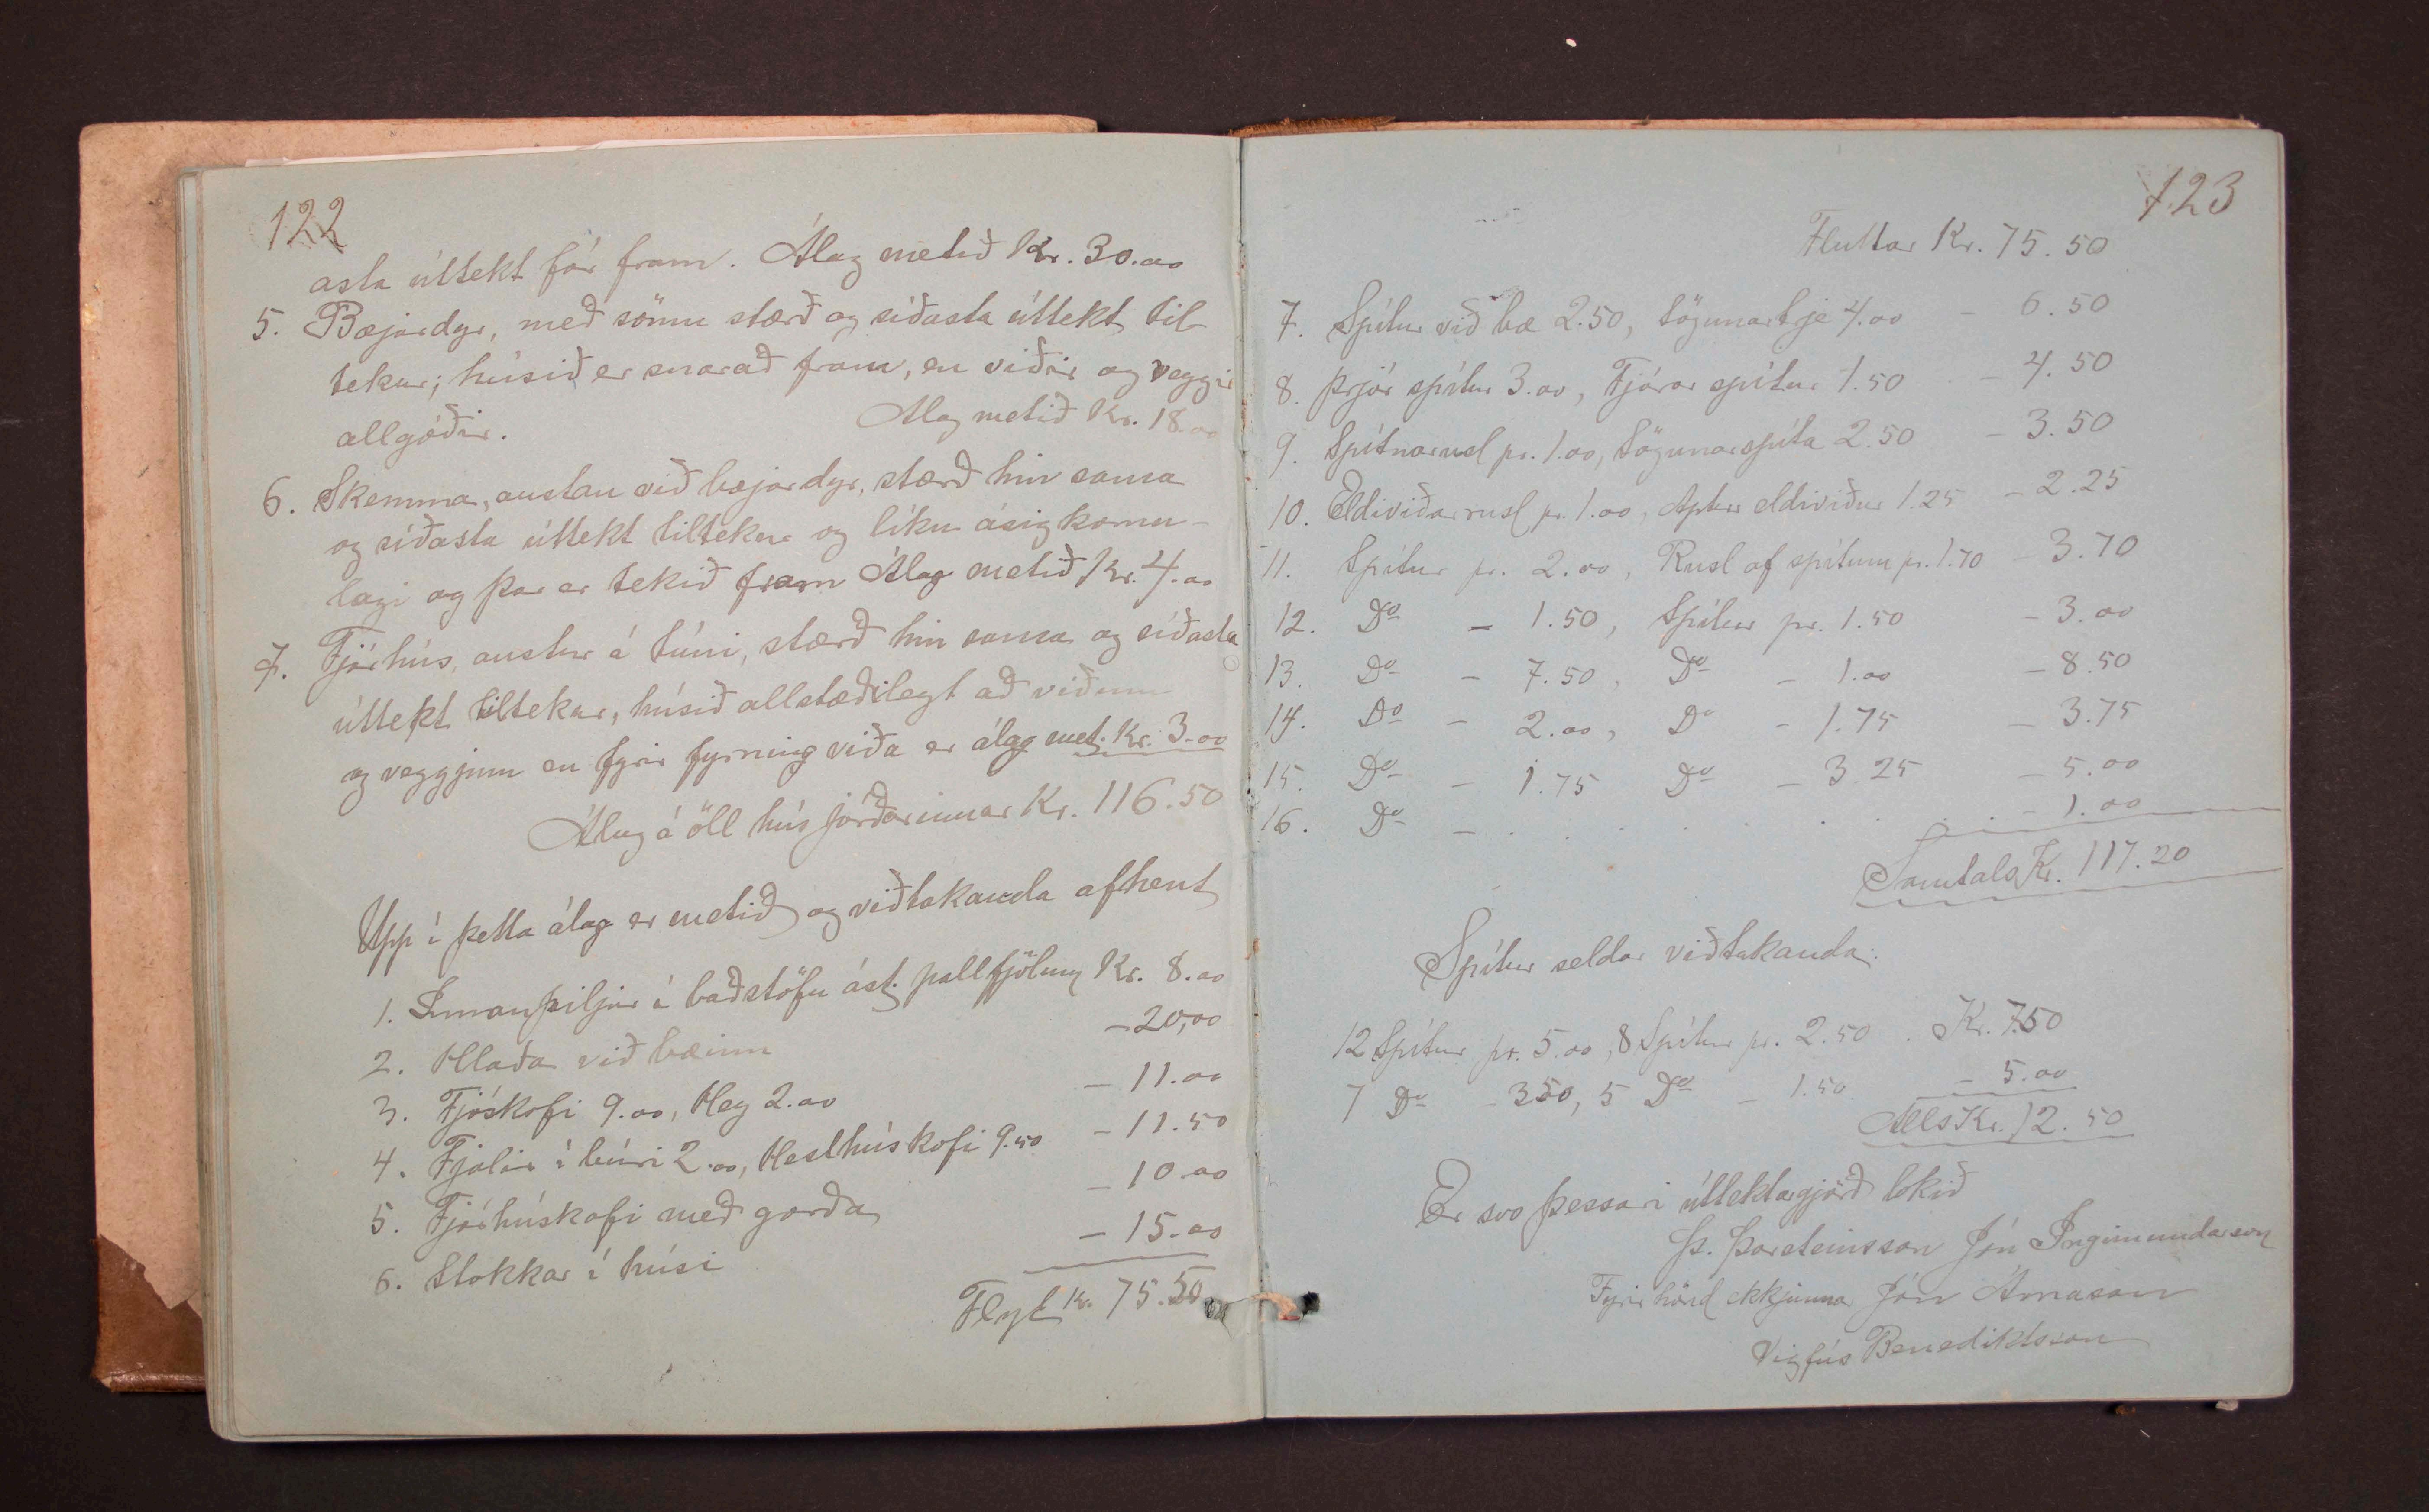 122
asta úttekt fór fram. Álag metið Kr. 30.00
5. Bæjardyr, með sömu stærð og síðasta úttekt til-
tekur; húsið er snarað fram, en viðir og veggir
allgóðir. Álag metið Kr. 18.00
6. Skemma, austan við bæjardyr, stærð hin sama
og síðasta úttekt tiltekur og líku ásigkomu-
lagi og þar er tekið fram Álag metið Kr. 4.00
7. Fjárhús, austur á túni, stærð hin sama og síðasta
úttekt tiltekur, húsið allstæðilegt að viðum
og veggjum en fyrir fyrning viða er álag met. Kr. 3.00
Álag á öll hús jarðarinnar Kr. 116.50
Upp í þetta álag er metið og viðtakanda afhent
1. Innanþiljur í baðstofu ást. pallfjölum Kr. 8.00
2. Hlaða við bæinn – 20,00
3. Fjóskofi 9.00, Hey 2.00 – 11.00
4. Fjalir í búri 2.00, Hesthúskofi 9.50 – 11.50
5. Fjárhúskofi með garða – 10.00
6. Stokkar í húsi – 15.00
Flyt Kr. 75.50
123
Fluttar Kr. 75.50
7. Spítur við bæ 2.50, Sögunartrje 4.00 – 6.50
8. Þrjár spítur 3.00, Fjórar spítur 1.50 – 4.50
9. Spítnarusl pr. 1.00, Sögunarspíta 2.50 – 3.50
10. Eldiviðarrusl pr. 1.00, Aptur eldiviður 1.25 – 2.25
11. Spítur pr. 2.00, Rusl af spítum pr. 1.70 – 3.70
12. Do – 1.50, Spítur pr. 1.50 – 3.00
13. Do – 7.50, Do – 1.00 – 8.50
14. Do – 2.00, Do – 1.75 – 3.75
15. Do – 1.75 Do – 3.25 – 5.00
16. Do – . . . . . . . . – 1.00
Samtals Kr. 117.20
Spítur seldar viðtakanda:
12 Spítur pr. 5.00, 8 Spítur pr. 2.50 . Kr. 7.50
7 Do – 3.50, 5 Do – 1.50 – 5.00
Alls Kr. 12.50
Er svo þessari úttektargjörð lokið
Þ. Þorsteinsson Jón Ingimundarson
Fyrir hönd ekkjunnar Jón Árnason
Vigfús Benediktsson